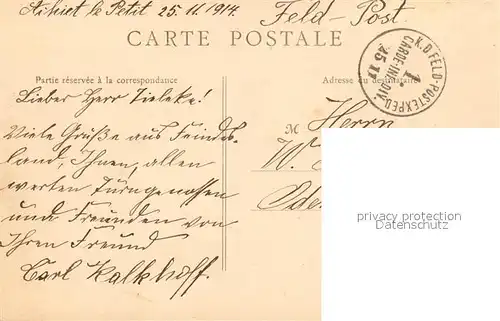 Achiet le Petit 25.11.1914. Feld-Post.
CARTE POSTALE
Partie réservée à la correspondance
Adresse du destinataire
K.D. FELD-POSTEXPED.
1. GARDE-INF.DIV.
25 11
Lieber Herr Zieleke!
Viele Grüße aus Feindes-
land, Ihnen, allen
werten Turngenossen
und Freunden von
Ihren Freund
Carl Kalkhoff.
M Herrn
W.
privacy protection
Datenschutz